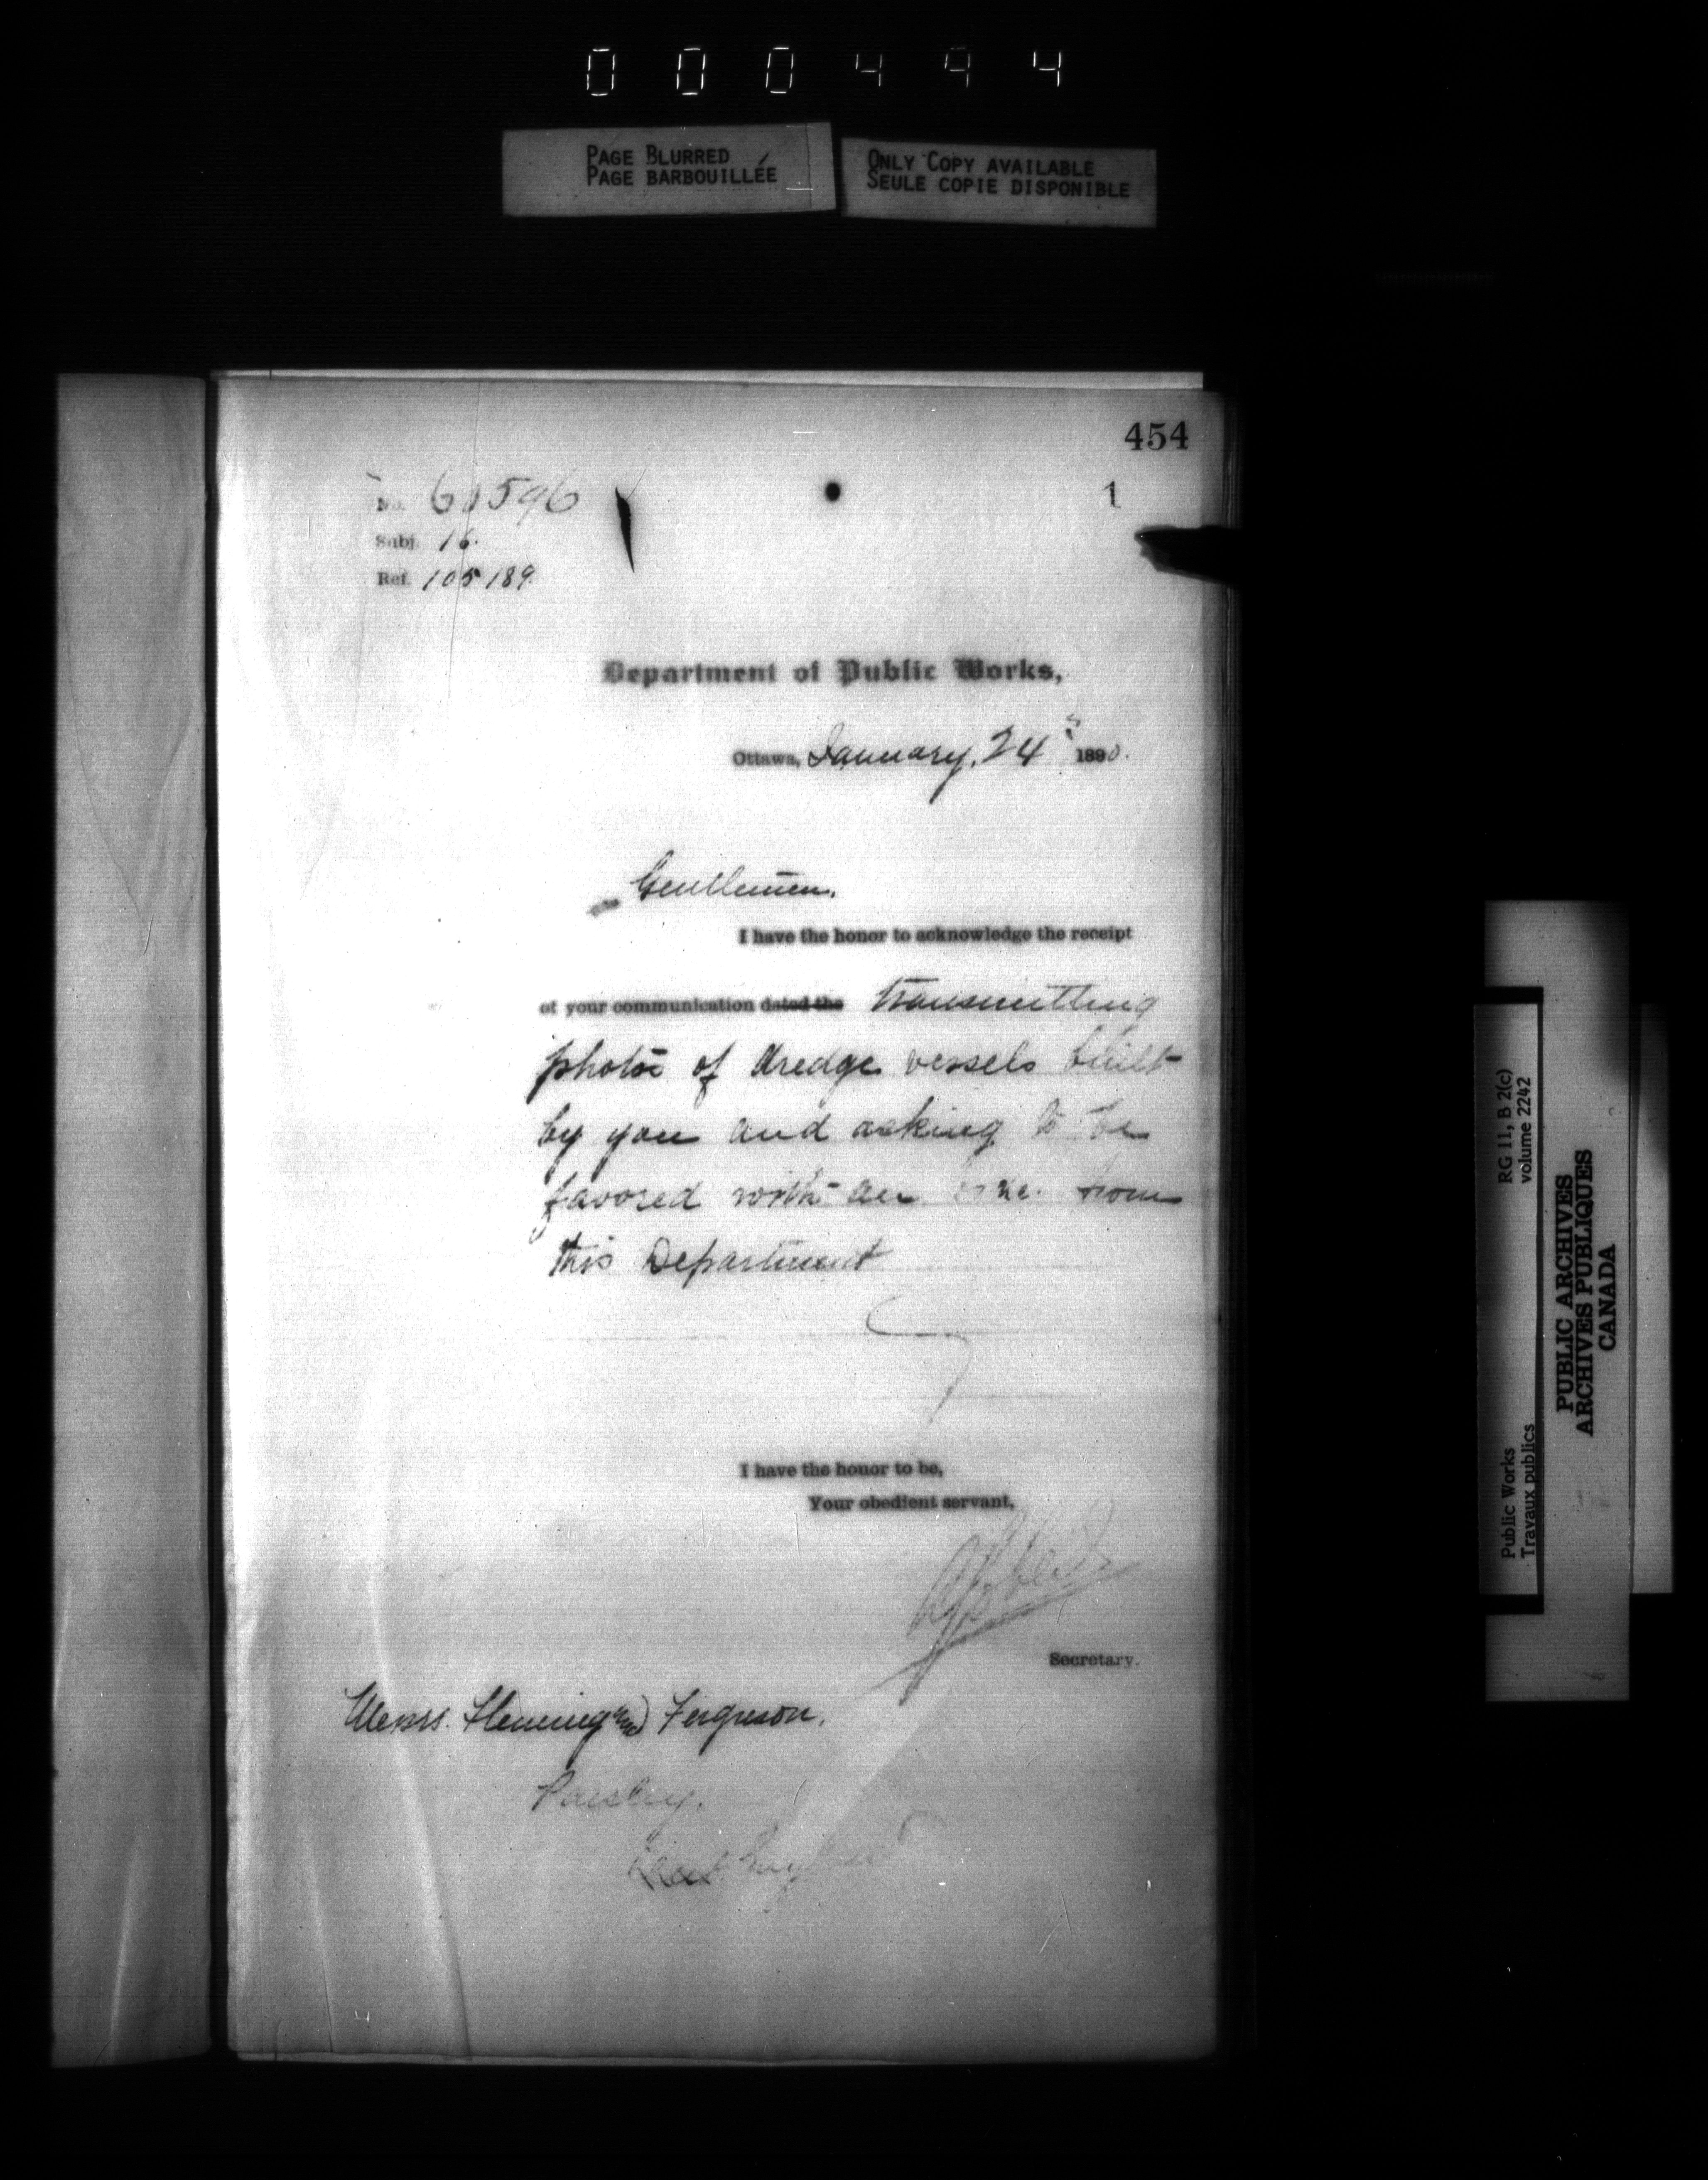 000494
PAGE BLURRED
PAGE BARBOUILLÉE
ONLY COPY AVAILABLE
SEULE COPIE DISPONIBLE
454
1
No. 60596
Subj. 16.
Ref. 105189.
Department of Public Works,
Ottawa, January, 24th 1890.
Gentlemen,
I have the honor to acknowledge the receipt
of your communication dated the transmitting
photos of dredge vessels built
by you and asking to be
favored with an from
this Department
I have the honor to be,
Your obedient servant,
Secretary.
Messrs. Fleming and Ferguson,
Paisley,
England
RG 11, B 2(c)
volume 2242
Public Works
Travaux publics
PUBLIC ARCHIVES
ARCHIVES PUBLIQUES
CANADA